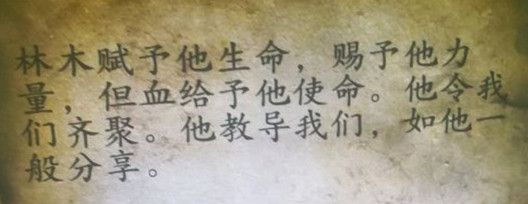 林木赋予他生命，赐予他力
量，但血给予他使命。他令我
们齐聚。他教导我们，如他一
般分享。